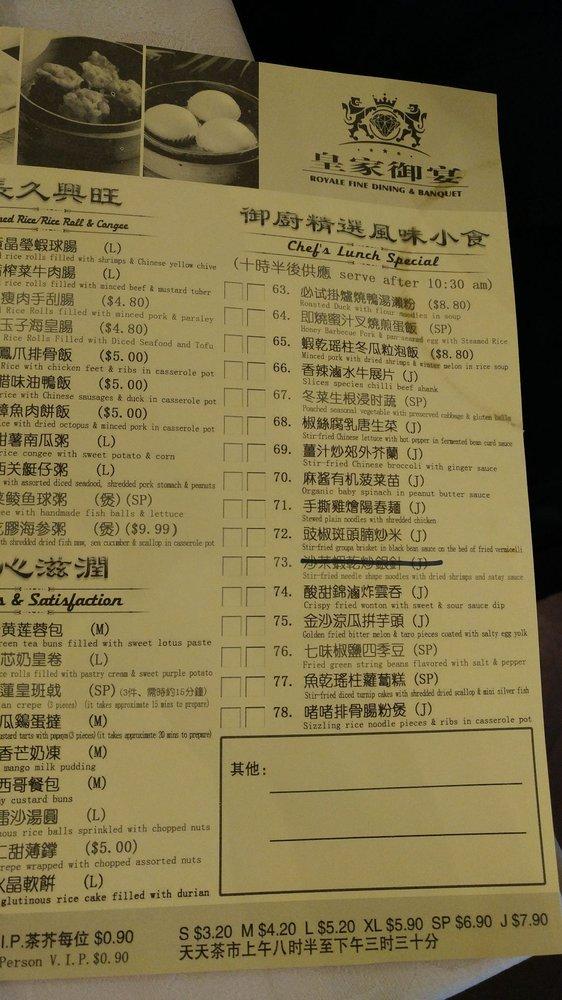 皇家御宴
ROYALE FINE DINING & BANQUET
長久興旺
Rice/Rice Roll & Congee
晶瑩蝦球腸 (L)
rice rolls filled with shrimps & Chinese yellow chive
榨菜牛肉腸 (L)
rice rolls filled with minced beef & mustard tuber
瘦肉手刮腸 ($4.80)
Rice Rolls filled with minced pork & parsley
玉子海皇腸 ($4.80)
Rice Rolls Filled with Diced Seafood and Tofu
鳳爪排骨飯 ($5.00)
Rice with chicken feet & ribs in casserole pot
腊味油鴨飯 ($5.00)
rice with Chinese sausages & duck in casserole pot
魚肉餅飯 ($5.00)
rice with dried octopus & minced pork in casserole pot
甜薯南瓜粥 (L)
rice congee with sweet potato & corn
西关艇仔粥 (L)
with assorted diced seafood, shredded pork stomach & peanuts
鲮鱼球粥 (煲)(SP)
with handmade fish balls & lettuce
膠海参粥 (煲)($9.99)
with shredded dried fish maw, sea cucumber & scallop in casserole pot
心滋潤
& Satisfaction
黄莲蓉包 (M)
green tea buns filled with sweet lotus paste
芯奶皇卷 (L)
rice rolls filled with pastry cream & sweet purple potato
蓮皇班戟 (SP) (3件、需時約15分鐘)
crepe (3 pieces) (it takes approximate 15 mins to prepare)
瓜鷄蛋撻 (M)
custard tarts with papaya(3 pieces)(it takes approximate 20 mins to prepare)
香芒奶凍 (M)
mango milk pudding
西哥餐包 (M)
custard buns
擂沙湯圓 (L)
rice balls sprinkled with chopped nuts
仁甜薄撐 ($5.00)
crepe wrapped with chopped assorted nuts
水晶軟餅 (L)
glutinous rice cake filled with durian
V.I.P.茶芥每位 $0.90
Person V.I.P.$0.90
御廚精選風味小食
Chef's Lunch Special
(十時半後供應 serve after 10:30 am)
63. 必试掛爐燒鴨湯瀨粉 ($8.80)
Roasted Duck with flour noodles in soup
64. 即燒蜜汁叉燒煎蛋飯 (SP)
Honey Barbecue Pork & pan-seared egg with Steamed Rice
65. 蝦乾瑤柱冬瓜粒泡飯 ($8.80)
Minced pork with dried shrimps & winter melon in rice soup
66. 香辣滷水牛展片 (J)
Slices species chilli beef shank
67. 冬菜生根浸时蔬 (SP)
Poached seasonal vegetable with preserved cabbage & gluten balls
68. 椒絲腐乳唐生菜 (J)
Stir-fried Chinese lettuce with hot pepper in fermented bean curd sauce
69. 薑汁炒郊外芥蘭 (J)
Stir-fried Chinese broccoli with ginger sauce
70. 麻酱有机菠菜苗 (J)
Organic baby spinach in peanut butter sauce
71. 手撕雞燴陽春麵 (J)
Stewed plain noodles with shredded chicken
72. 豉椒斑頭腩炒米 (J)
Stir-fried groupa brisket in black bean sauce on the bed of fried vermicelli
73. 沙茶蝦乾炒銀針 (J)
Stir-fried needle shape noodles with dried shrimps and satay sauce
74. 酸甜錦滷炸雲吞 (J)
Crispy fried wonton with sweet & sour sauce dip
75. 金沙涼瓜拼芋頭 (J)
Golden fried bitter melon & taro pieces coated with salty egg yolk
76. 七味椒鹽四季豆 (SP)
Fried green string beans flavored with salt & pepper
77. 魚乾瑤柱蘿蔔糕 (SP)
Stir-fried diced turnip cakes with shredded dried scallop & mini silver fish
78. 啫啫排骨腸粉煲 (J)
Sizzling rice noodle pieces & ribs in casserole pot
其他:
S $3.20 M $4.20 L $5.20 XL $5.90 SP $6.90 J $7.90
天天茶市上午八时半至下午三时三十分